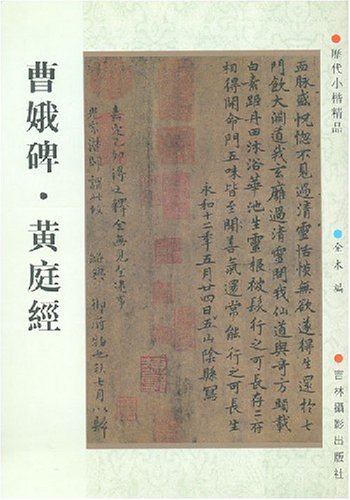 歷代小楷精品
全木 編
吉林攝影出版社
曹娥碑·黄庭經
恍惚不見過清靈恬惔無欲遂得生還於七
門飲大淵道我玄廱過清靈問我仙道與奇方頭載
白素距丹田沐浴華池生靈根被髮行之可長存二府
相得開命門五味皆至開善氣還常能行之可長生
永和十二年五月廿四日五山陰縣寫